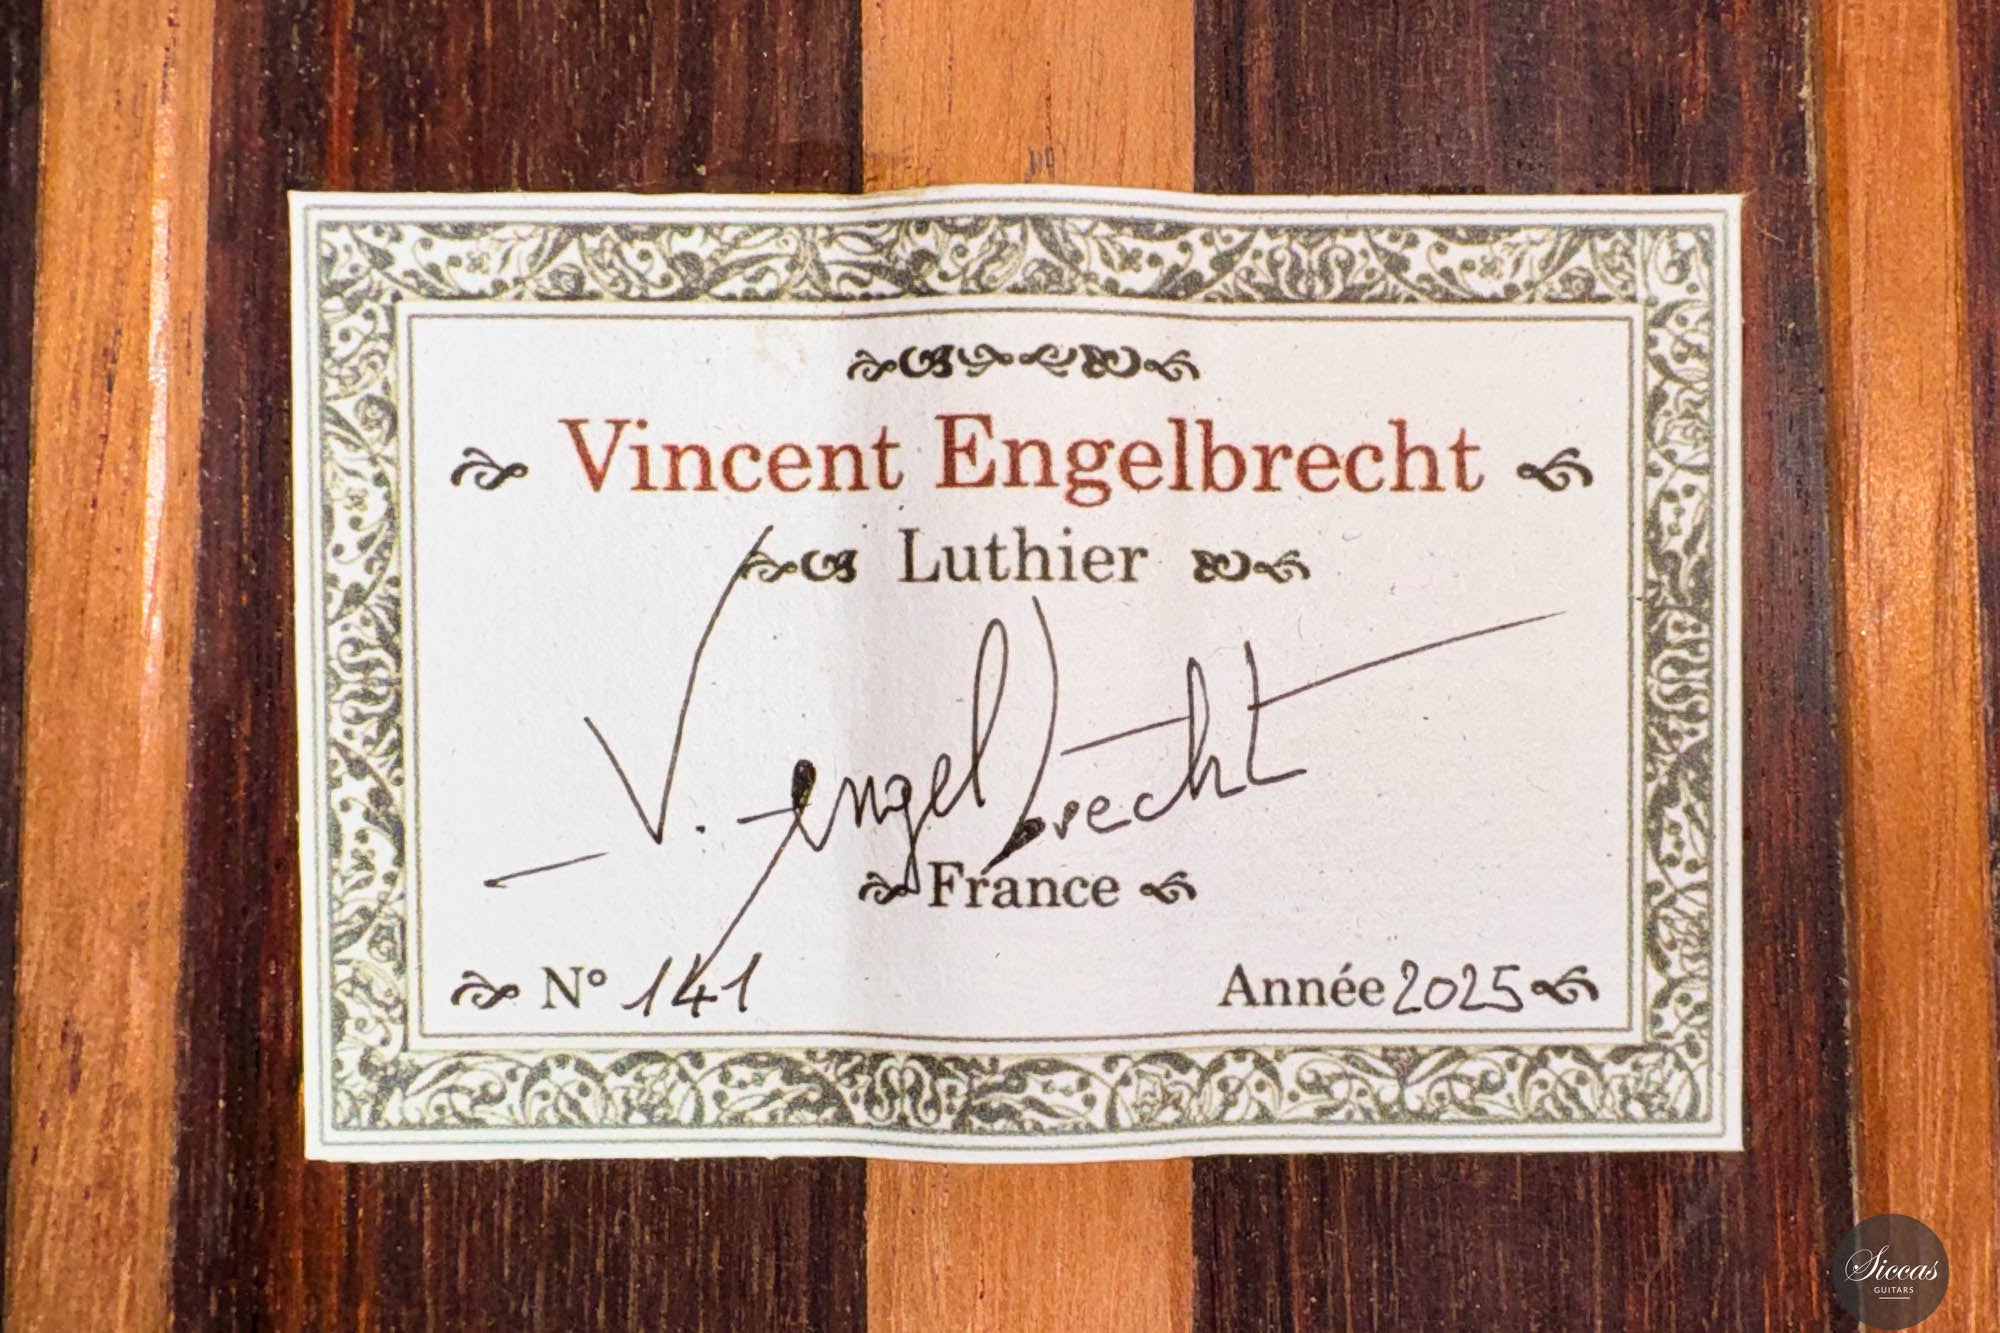 Vincent Engelbrecht
Luthier
V. Engelbrecht
France
N° 141
Année 2025
Siccas
GUITARS